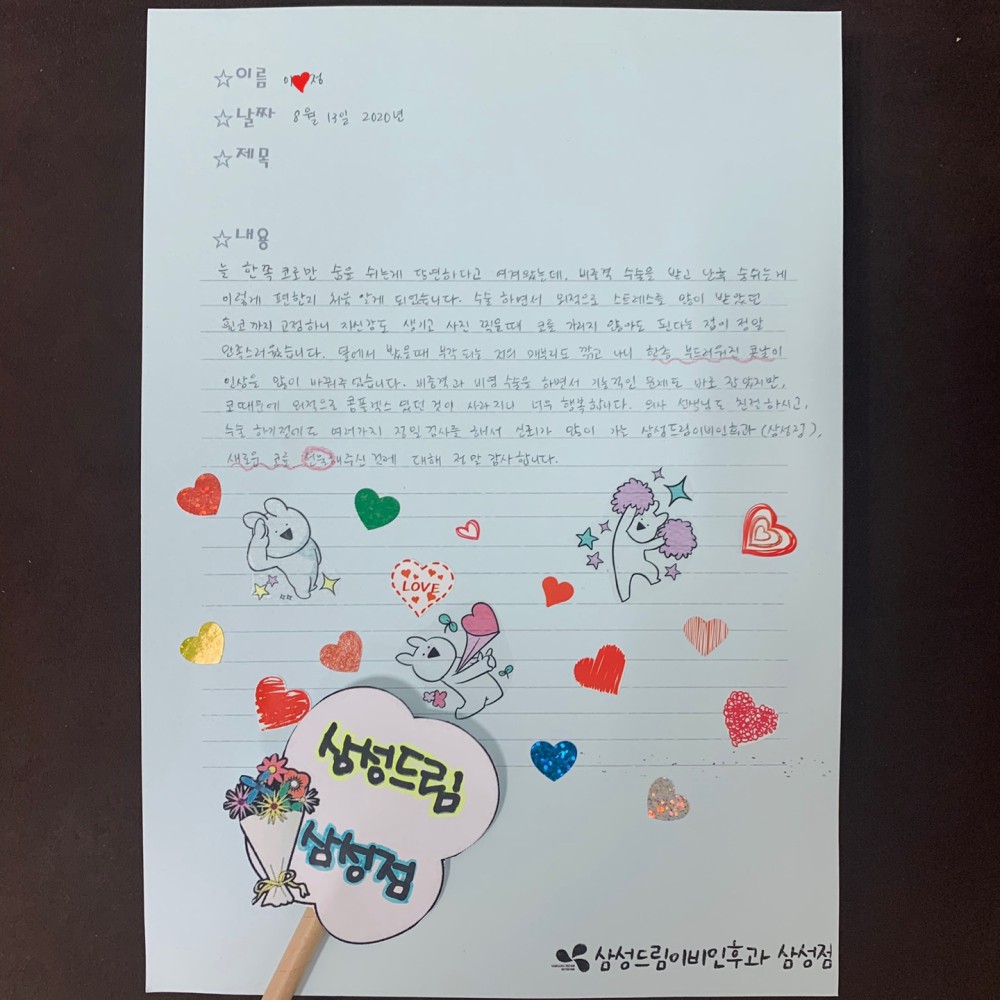 ☆이름 이♥정
☆날짜 8월 13일 2020년
☆제목
☆내용
늘 한쪽 코로만 숨을 쉬는게 당연하다고 여겨왔는데, 비중격 수술을 받고 난후 숨쉬는게
이렇게 편한지 처음 알게 되었습니다. 수술 하면서 외적으로 스트레스를 많이 받았던
휜코까지 교정하니 자신감도 생기고 사진 찍을때 코를 가리지 않아도 된다는 점이 정말
만족스러웠습니다. 옆에서 봤을때 부각되는 저의 매부리도 깎고 나니 한층 부드러워진 콧날이
인상을 많이 바꿔주었습니다. 비중격과 비염 수술을 하면서 기능적인 문제도 바로 잡았지만,
코때문에 외적으로 콤플렉스 였던 것이 사라지니 너무 행복합니다. 의사 선생님도 친절하시고,
수술 하기전에도 여러가지 정밀검사를 해서 신뢰가 많이 가는 삼성드림이비인후과(삼성점),
새로운 코를 선물해주신 것에 대해 정말 감사합니다.
LOVE
삼성드림
삼성점
삼성드림이비인후과 삼성점